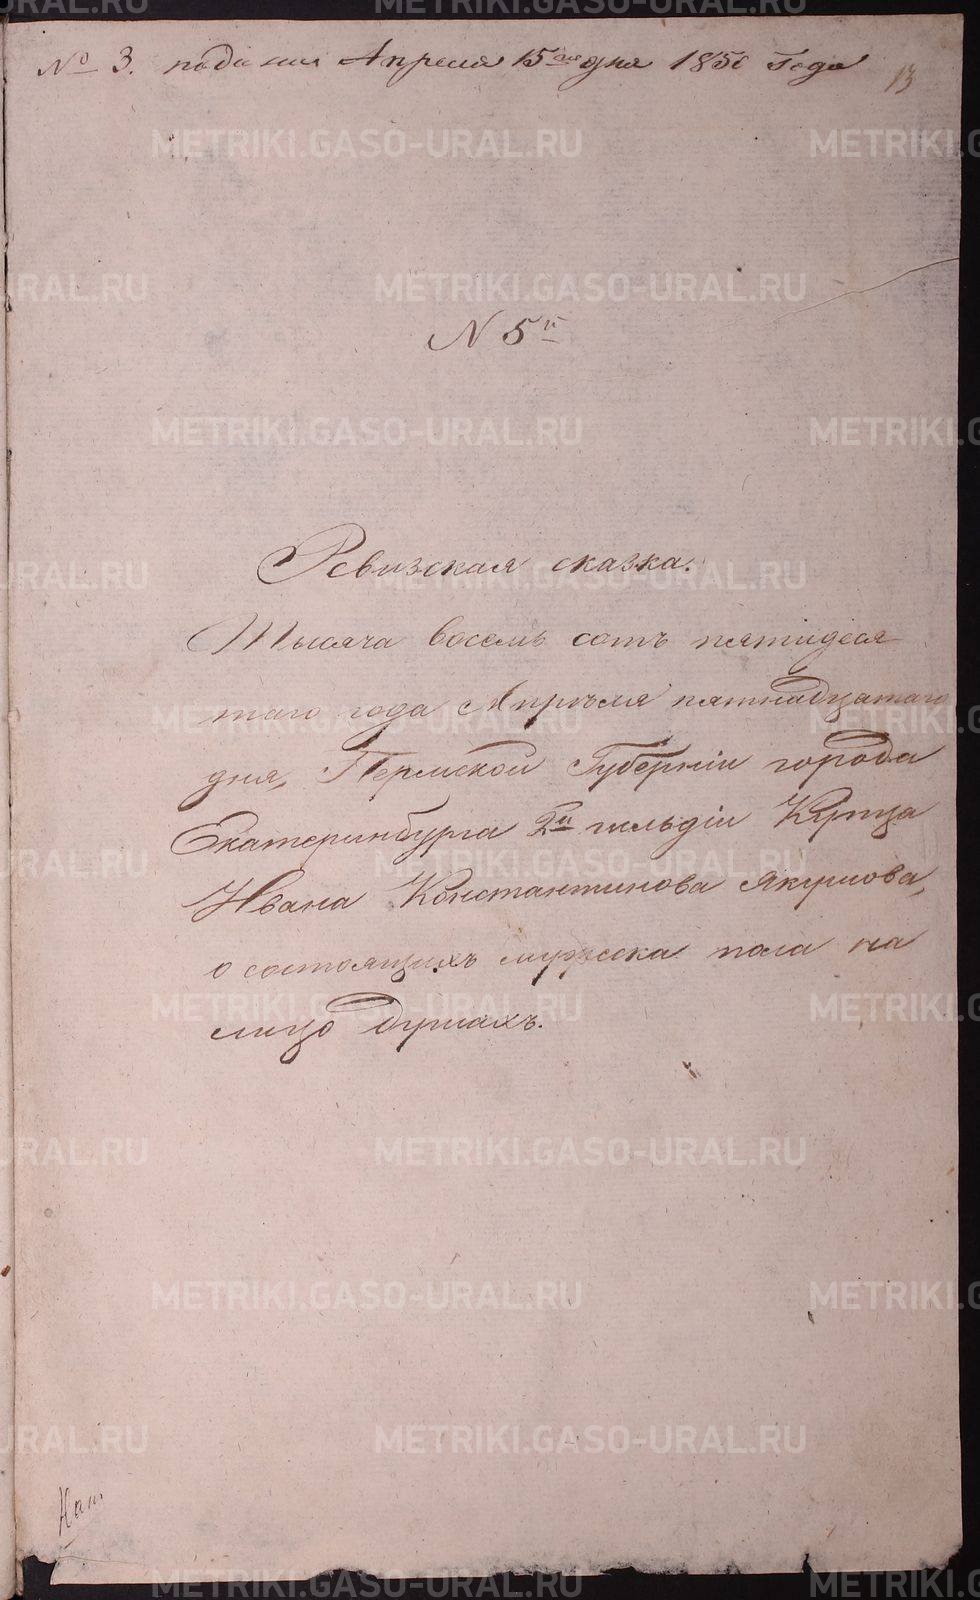 № 3. подания Апреля 15го дня 1850 Года
13
N 5й
Ревизская сказка.
Тысяча восемь сотъ пятидеся
таго года Апрѣля пятнадцатаго
дня, Пермской Губерніи города
Екатеринбурга 2й гильдіи Купца
Ивана Константинова Якушова,
о состоящихъ мужеска пола на
лицо душахъ.
METRIKI.GASO-URAL.RU